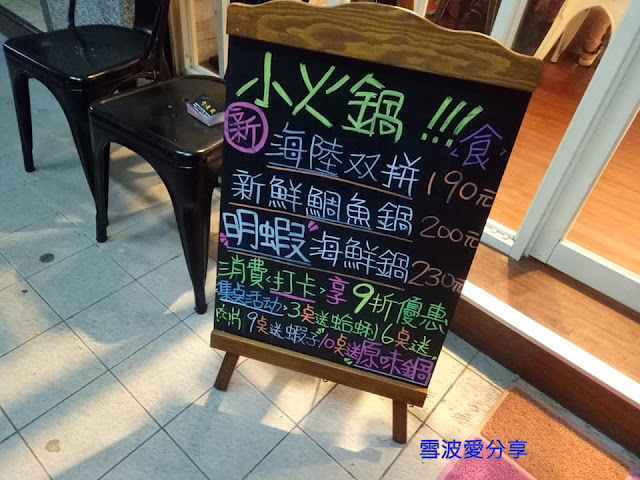 小火鍋!!!食
新 海陸双拼 190元
新鮮鯛魚鍋 200元
明蝦海鮮鍋 230元
消費,打卡,享9折優惠
集點活動,3點送蛤蜊,6點送
9點送蝦子,10點送原味鍋
雪波愛分享